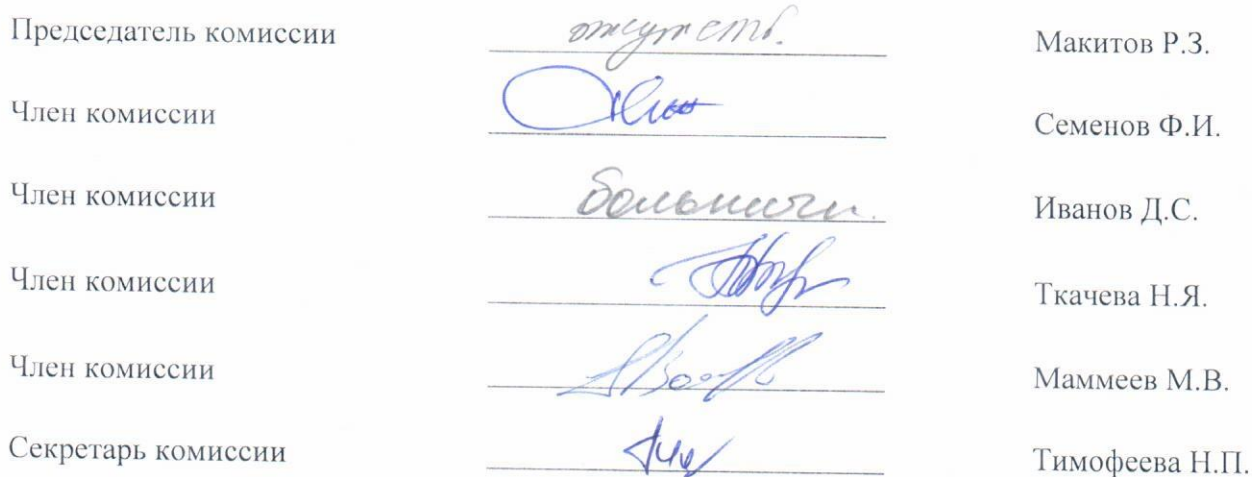 Председатель комиссии отсутств. Макитов Р.З.
Член комиссии Семенов Ф.И.
Член комиссии больничн. Иванов Д.С.
Член комиссии Ткачева Н.Я.
Член комиссии Маммеев М.В.
Секретарь комиссии Тимофеева Н.П.